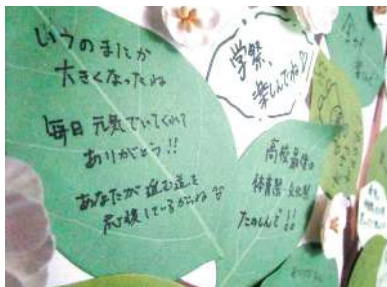 いつのまにか
大きくなったね
毎日元気でいてくれて
ありがとう!!
あなたが進む道を
応援しているからね
学祭、
楽しんでね♪
高校最後の
体育祭・文化祭
たのしんで!!